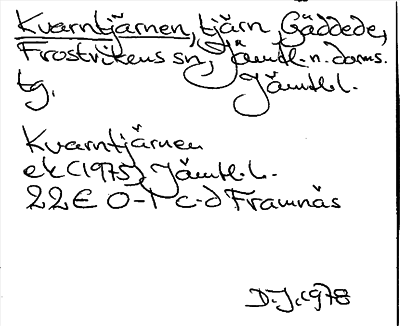 Kvarntjärnen, tjärn, Gäddede,
Frostvikens sn, Jämtl. n. doms.
tg. Jämtl.
Kvarntjärnen
ek (1975), Jämtl. l.
22E 0-1 c-d Framnäs
D.J. 1978